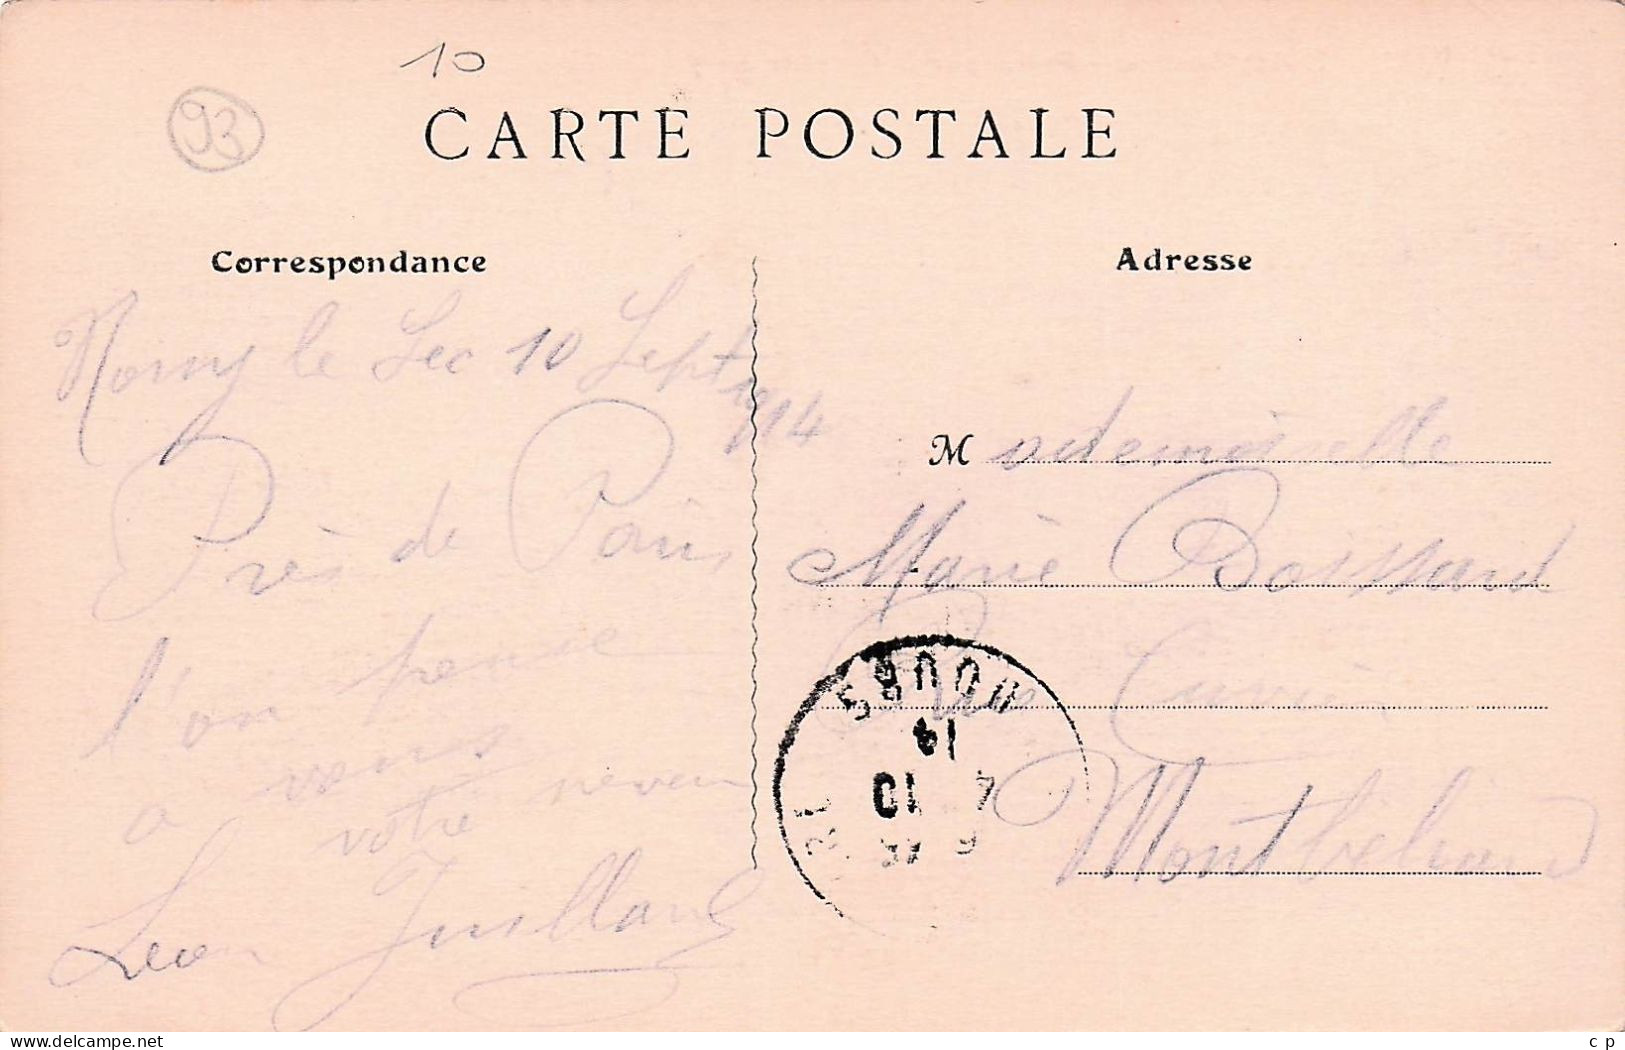 10
93
CARTE POSTALE
Correspondance
Noisy le Sec 10 Sept 1914
Près de Paris
l'on pense
a vous
votre neveu
Leon Juillard
Adresse
Mademoiselle
Marie Boissard
Cuvier
Montbéliard
DOUBS
14
4 10
delcampe.net
c p